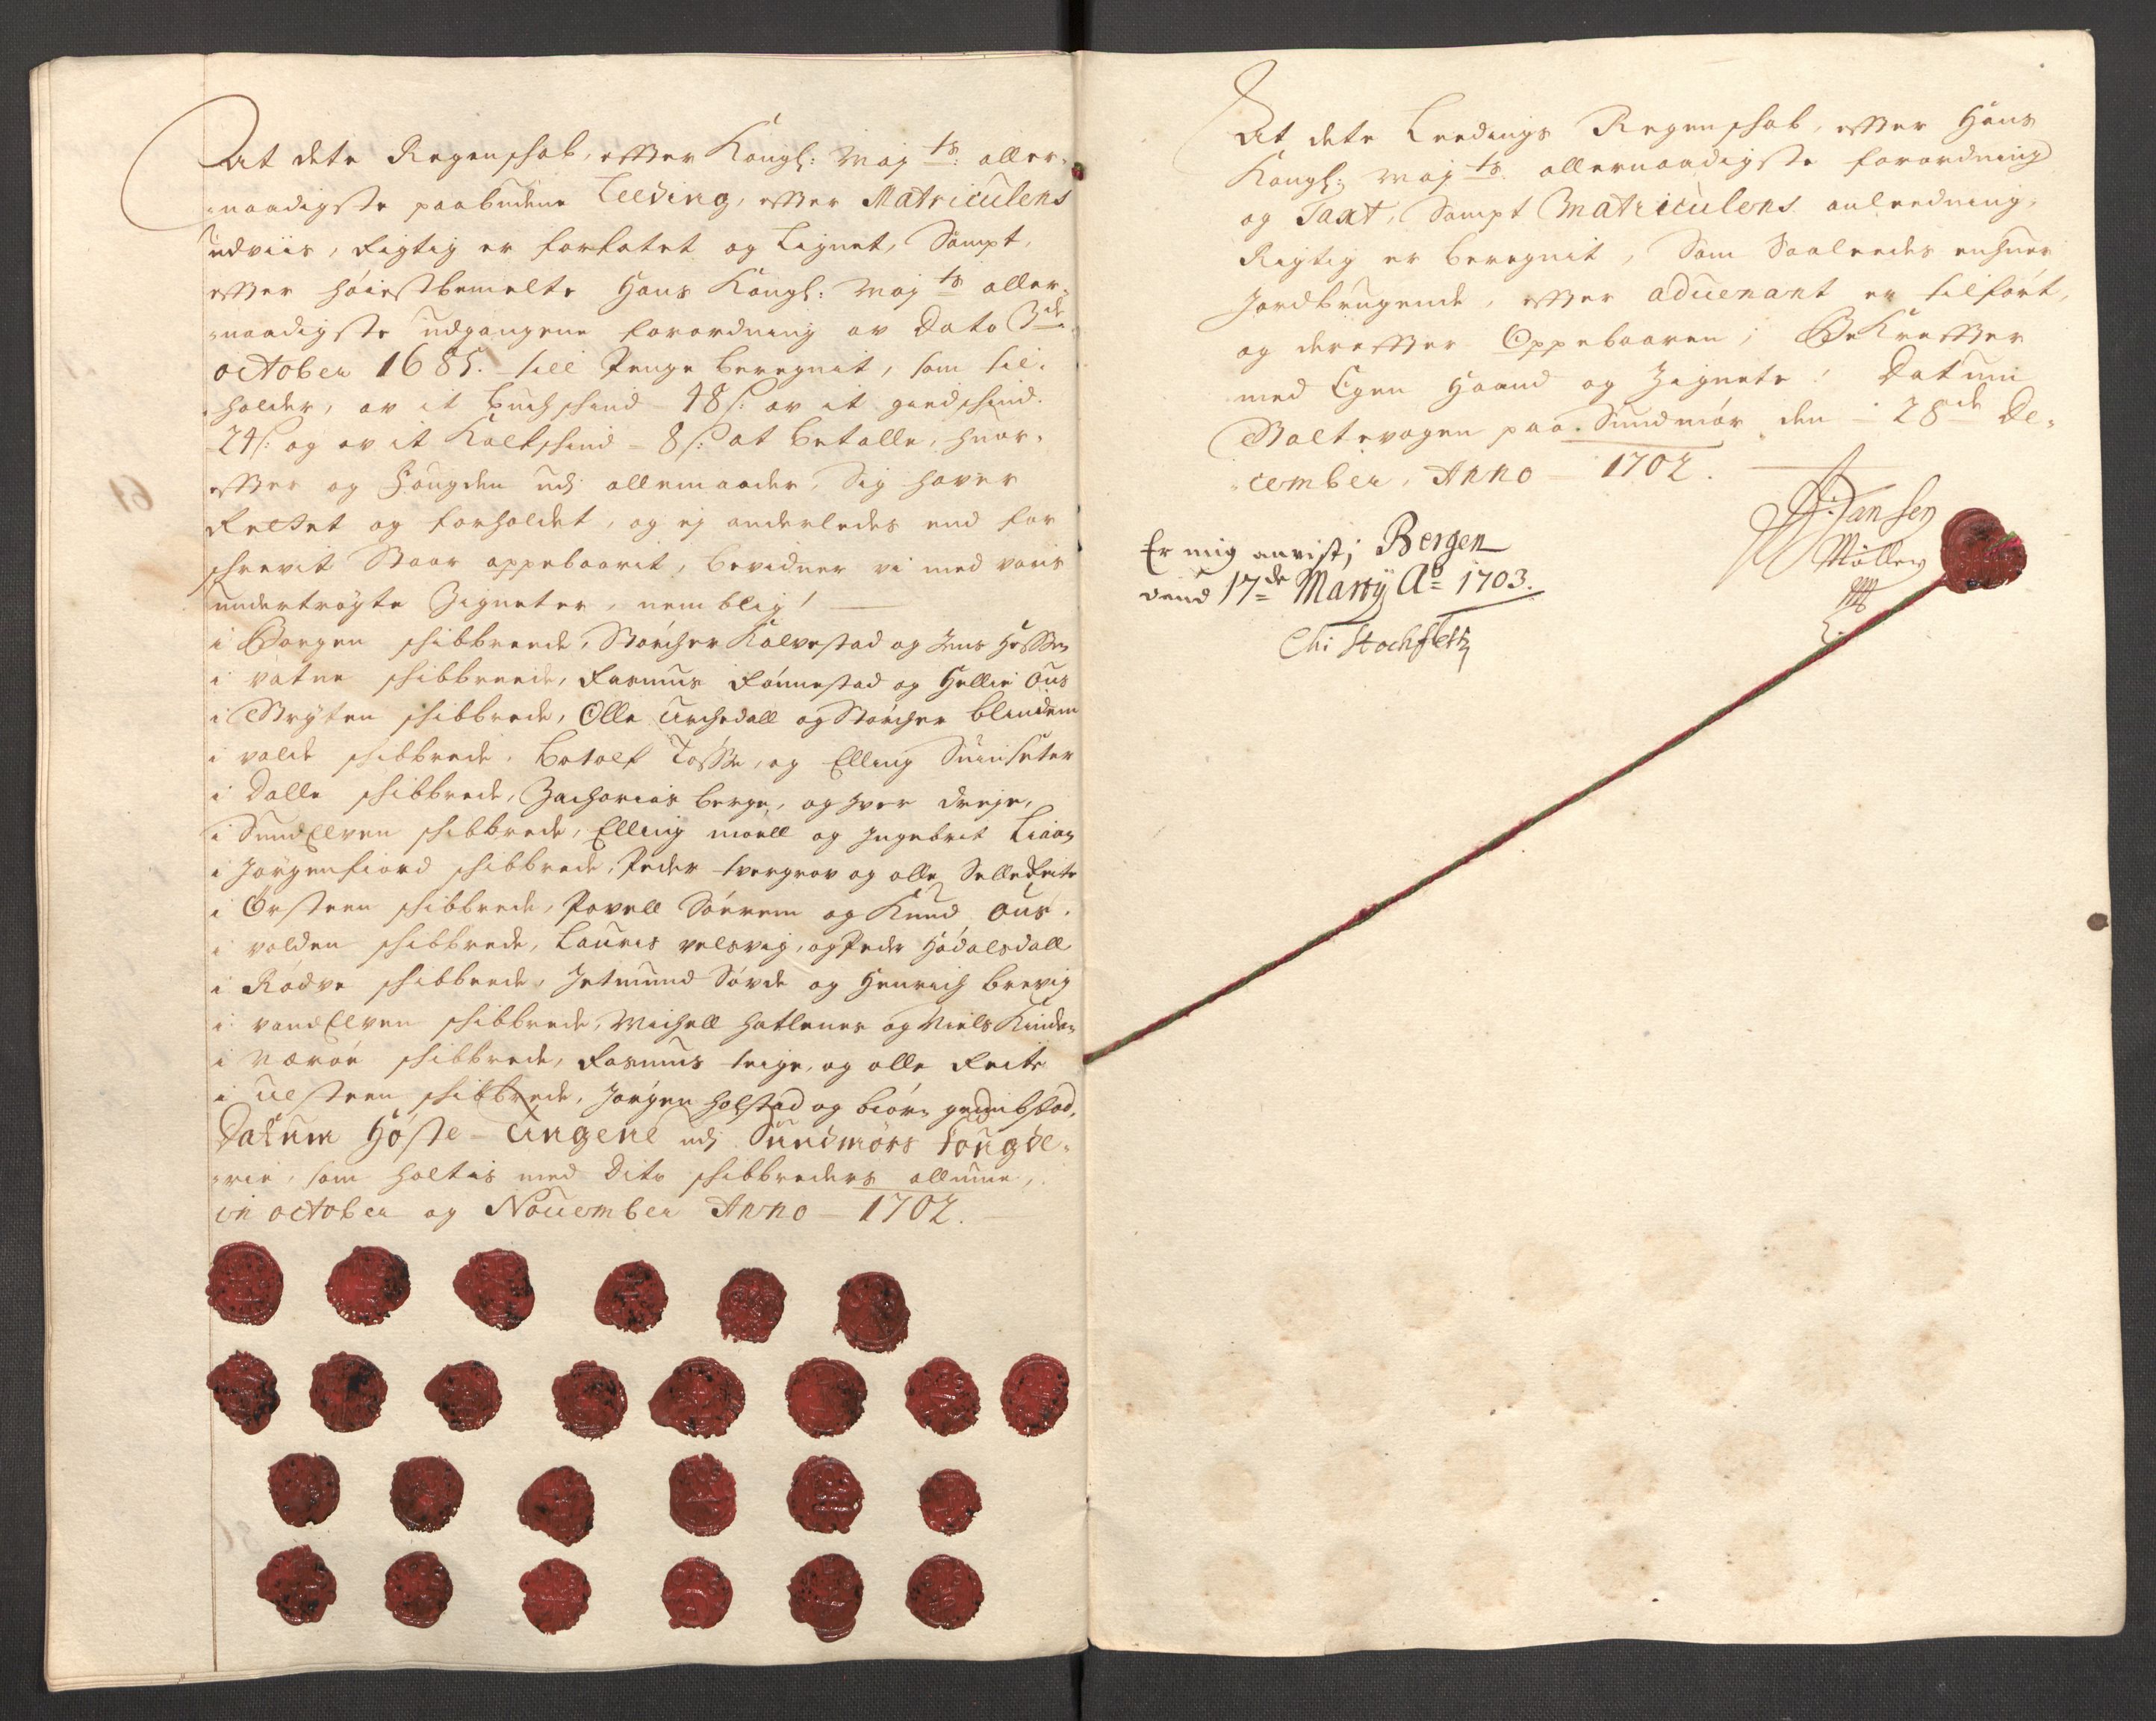 At dete Regenschab, effter Kongl: Maj ts: aller-
naadigste paabudene Leeding, effter Matriculens
udviis, Rigtig er forfatet og Lignet, Sampt,
effter høiestbemelte Hans Kongl: Maj ts aller-
naadigste udgangene forordning av Dato 3de
october 1685. till Penge beregnit, som til-
holder, av it buchschind 48 s: av it giedschind
24 s: og av it Kalfschind - 8 s: at betalle, hvor-
effter og Fougden udj allemaader, Sig haver
Rettet og forholdet, og ej anderledes end for
schrevit staar oppebaarit, bevidner vi med voris
undertrøgte Zigneter, nemblig! —
i Borgen schibbrede, Størcher Kalvestad og Jens Hessen
i vatne schibbrede, Rasmus Rønnestad og Hellie Ous
i Stryten schibbrede, Olle Urchedall og Størcher blindem
i valde schibbrede, Botolf Tosse, og Elling
i Dalle schibbrede, Zacharias berge, og Iver dreje,
i SundElven schibbrede, Elling moell og Ingebret Liaan
i Jørgenfiord schibbrede, Peder tvergrov og olle Sellereite
i Ørsteen schibbrede, Povell Sørrem og Knud Ous.
i volden schibbrede, Lauris velsvig, og Peder Hødalsdall
i Rødve schibbrede, Jetmund Søvde og Henrich brevig
i vandElven schibbrede, Michell hatlenes og Niels Kinden
i Nærøe schibbrede, Rasmus teige, og olle Reite
i ulsteen schibbrede, Jørgen holstad og biørn
Datum Høste-Tingene udj Sundmørs fougde-
rie, som holtis med Dite schibbreders allmue,
in october og November Anno - 1702.
At dete Leedings Regenschab, effter Hans
Kongl: Maj ts allernaadigste forordning
og Taxt, Sampt Matriculens anleedning,
Rigtig er beregnit, Som Saaleedes enhver
Jordbrugende, effter aduenant er tilført,
og dereffter Oppebaaren, Bekreffter
med Egen Haand og Zignete! Datum
Valtevogen paa Sundmør den - 28de De-
cember, Anno - 1702.
Jansen
Møller
Er mig anvist j Bergen
dend 17de Martij Ao 1703.
Chr Stockfleth